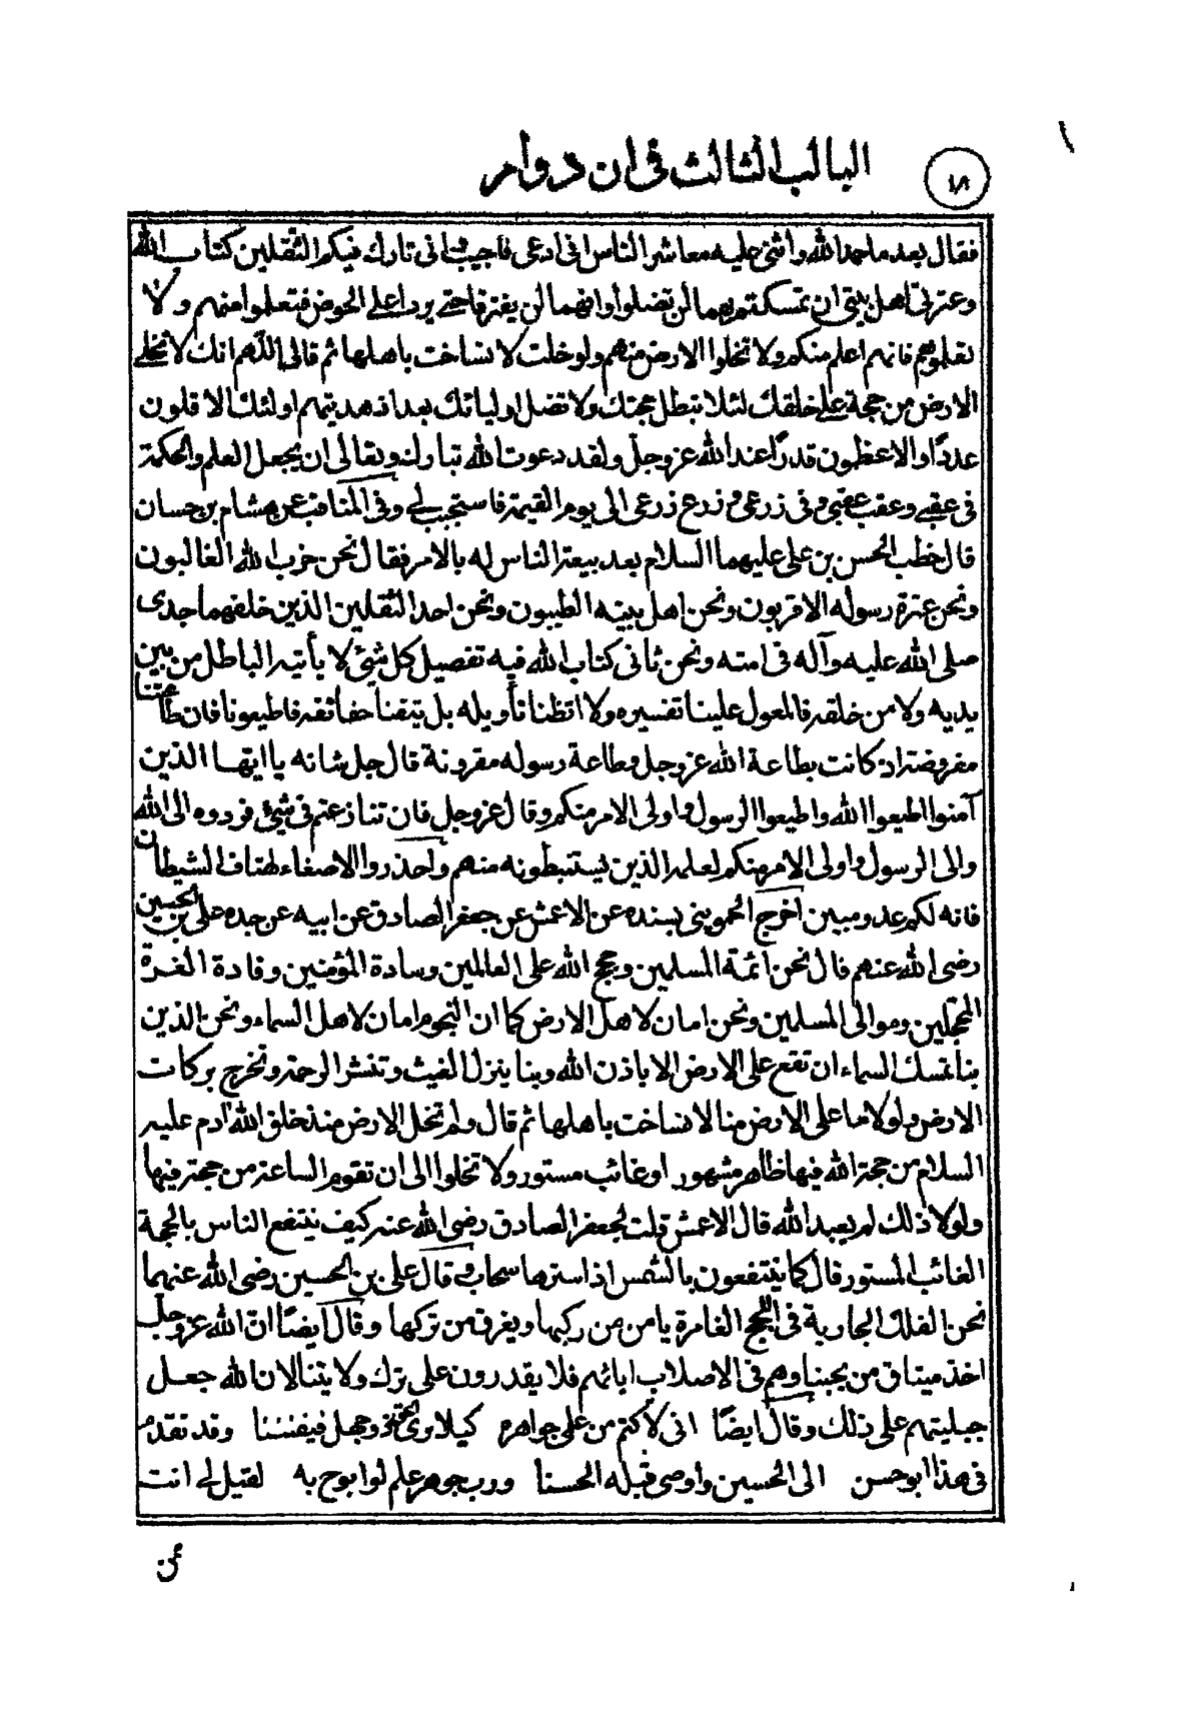 ١٨
الباب الثالث فى ان دوام
فقال بعد ما حمد الله واثنى عليه معاشر الناس انى ادعى فاجيب انى تارك فيكم الثقلين كتاب الله
وعترتى اهل بيتى ان تمسكتم بهما لن تضلوا وانهما لن يفترقا حتى يردا على الحوض فتعلموا منهم ولا
تعلموهم فانهم اعلم منكم ولا تخلوا الارض منهم ولو خلت لانساخت باهلها ثم قال اللهم انك لا تخلى
الارض من حجة على خلقك لئلا تبطل حجتك ولا تضل اوليائك بعد اذ هديتهم اولئك الاقلون
عددًا والاعظمون قدرًا عند الله عز وجل ولقد دعوت الله تبارك وتعالى ان يجعل العلم والحكمة
فى عقبى وعقب عقبى وفى زرعى وزرع زرعى الى يوم القيمة فاستجيب لى وفى المناقب عن هشام بن حسان
قال خطب الحسن بن على عليهما السلام بعد بيعة الناس له بالامر فقال نحن حزب الله الغالبون
ونحن عترة رسوله الاقربون ونحن اهل بيته الطيبون ونحن احد الثقلين الذين خلفهما جدى
صلى الله عليه وآله فى امته ونحن ثانى كتاب الله فيه تفصيل كل شئ لا يأتيه الباطل من بين
يديه ولا من خلفه فالمعول علينا تفسيره ولا اتظننا تأويله بل تيقنا حقائقه فاطيعونا فان طاعتنا
مفروضة اذ كانت بطاعة الله عز وجل وطاعة رسوله مقرونة قال جل شانه يا ايها الذين
آمنوا اطيعوا الله واطيعوا الرسول واولى الامر منكم وقال عز وجل فان تنازعتم فى شئ فردوه الى الله
والى الرسول واولى الامر منكم لعلمه الذين يستنبطونه منهم واحذروا الاصغاء لهتاف الشيطان
فانه لكم عدو مبين اخرج الحموينى بسنده عن الاعمش عن جعفر الصادق عن ابيه عن جده على بن الحسين
رضى الله عنهم قال نحن ائمة المسلمين وحجج الله على العالمين وسادة المؤمنين وقادة الغرة
المحجلين وموالى المسلمين ونحن امان لاهل الارض كما ان النجوم امان لاهل السماء ونحن الذين
بنا تمسك السماء ان تقع على الارض الا باذن الله وبنا ينزل الغيث وتنشر الرحمة وتخرج بركات
الارض ولولا ما على الارض منا لانساخت باهلها ثم قال ولم تخل الارض منذ خلق الله آدم عليه
السلام من حجة الله فيها ظاهر مشهور او غائب مستور ولا تخلوا الى ان تقوم الساعة من حجة فيها
ولولا ذلك لم يعبد الله قال الاعمش قلت لجعفر الصادق رضى الله عنه كيف ينتفع الناس بالحجة
الغائب المستور قال كما ينتفعون بالشمس اذا سترها سحاب وقال على بن الحسين رضى الله عنهما
نحن الفلك الجارية فى اللجج الغامرة يامن من ركبها ويغرق من تركها وقال ايضًا ان الله عز وجل
اخذ ميثاق من يحبنا وهم فى الاصلاب ابائهم فلا يقدرون على ترك ولايتنا لان الله جعل
جبليتهم على ذلك وقال ايضًا انى لاكتم من على جواهره كيلا يرى الحق ذو جهل فيفتننا وقد تقدم
فى هذا ابو حسن الى الحسين واوصى قبله الحسنا ورب جوهر علم لو ابوح به لقيل لى انت
ممن